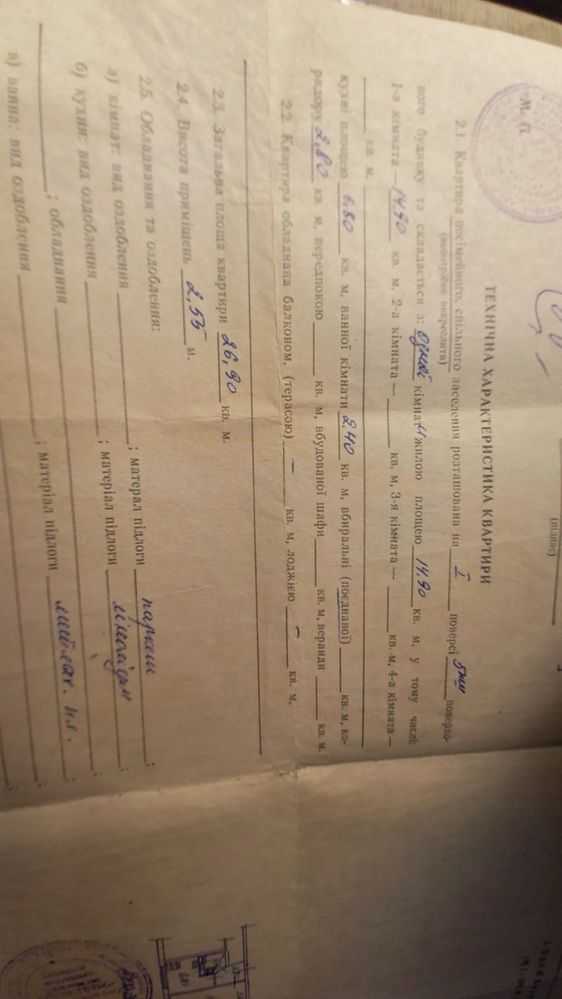 (підпис)
ТЕХНІЧНА ХАРАКТЕРИСТИКА КВАРТИРИ
2.1 Квартира посімейного, спільного заселення розташована на I поверсі 5ти поверхо-
(непотрібне закреслити)
вого будинку та складається з: однієї кімнати жилою площею 14.90 кв. м, у тому числі:
1-а кімната — 14.90 кв. м, 2-а кімната — кв. м, 3-я кімната — кв. м, 4-а кімната —
кв. м,
кухні площею 6.80 кв. м, ванної кімнати 2.40 кв. м, вбиральні (поєднаної) кв. м, ко-
ридору 2.80 кв. м, передпокою кв. м, вбудованої шафи кв. м, веранди кв. м.
2.2 Квартира обладнана балконом, (терасою) — кв. м, лоджією — кв. м.
2.3. Загальна площа квартири 26,90 кв. м.
2.4 Висота приміщень 2,55 м.
2.5. Обладнання та оздоблення:
а) кімнат: вид оздоблення ; матерал підлоги паркет ;
б) кухні: вид оздоблення ; матеріал підлоги лінолеум ;
; обладнання ;
в) ванна: вид оздоблення ; матеріал підлоги ;
М. П.